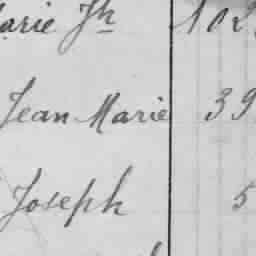 arie Jh 102
Jean Marie 39
Joseph 5